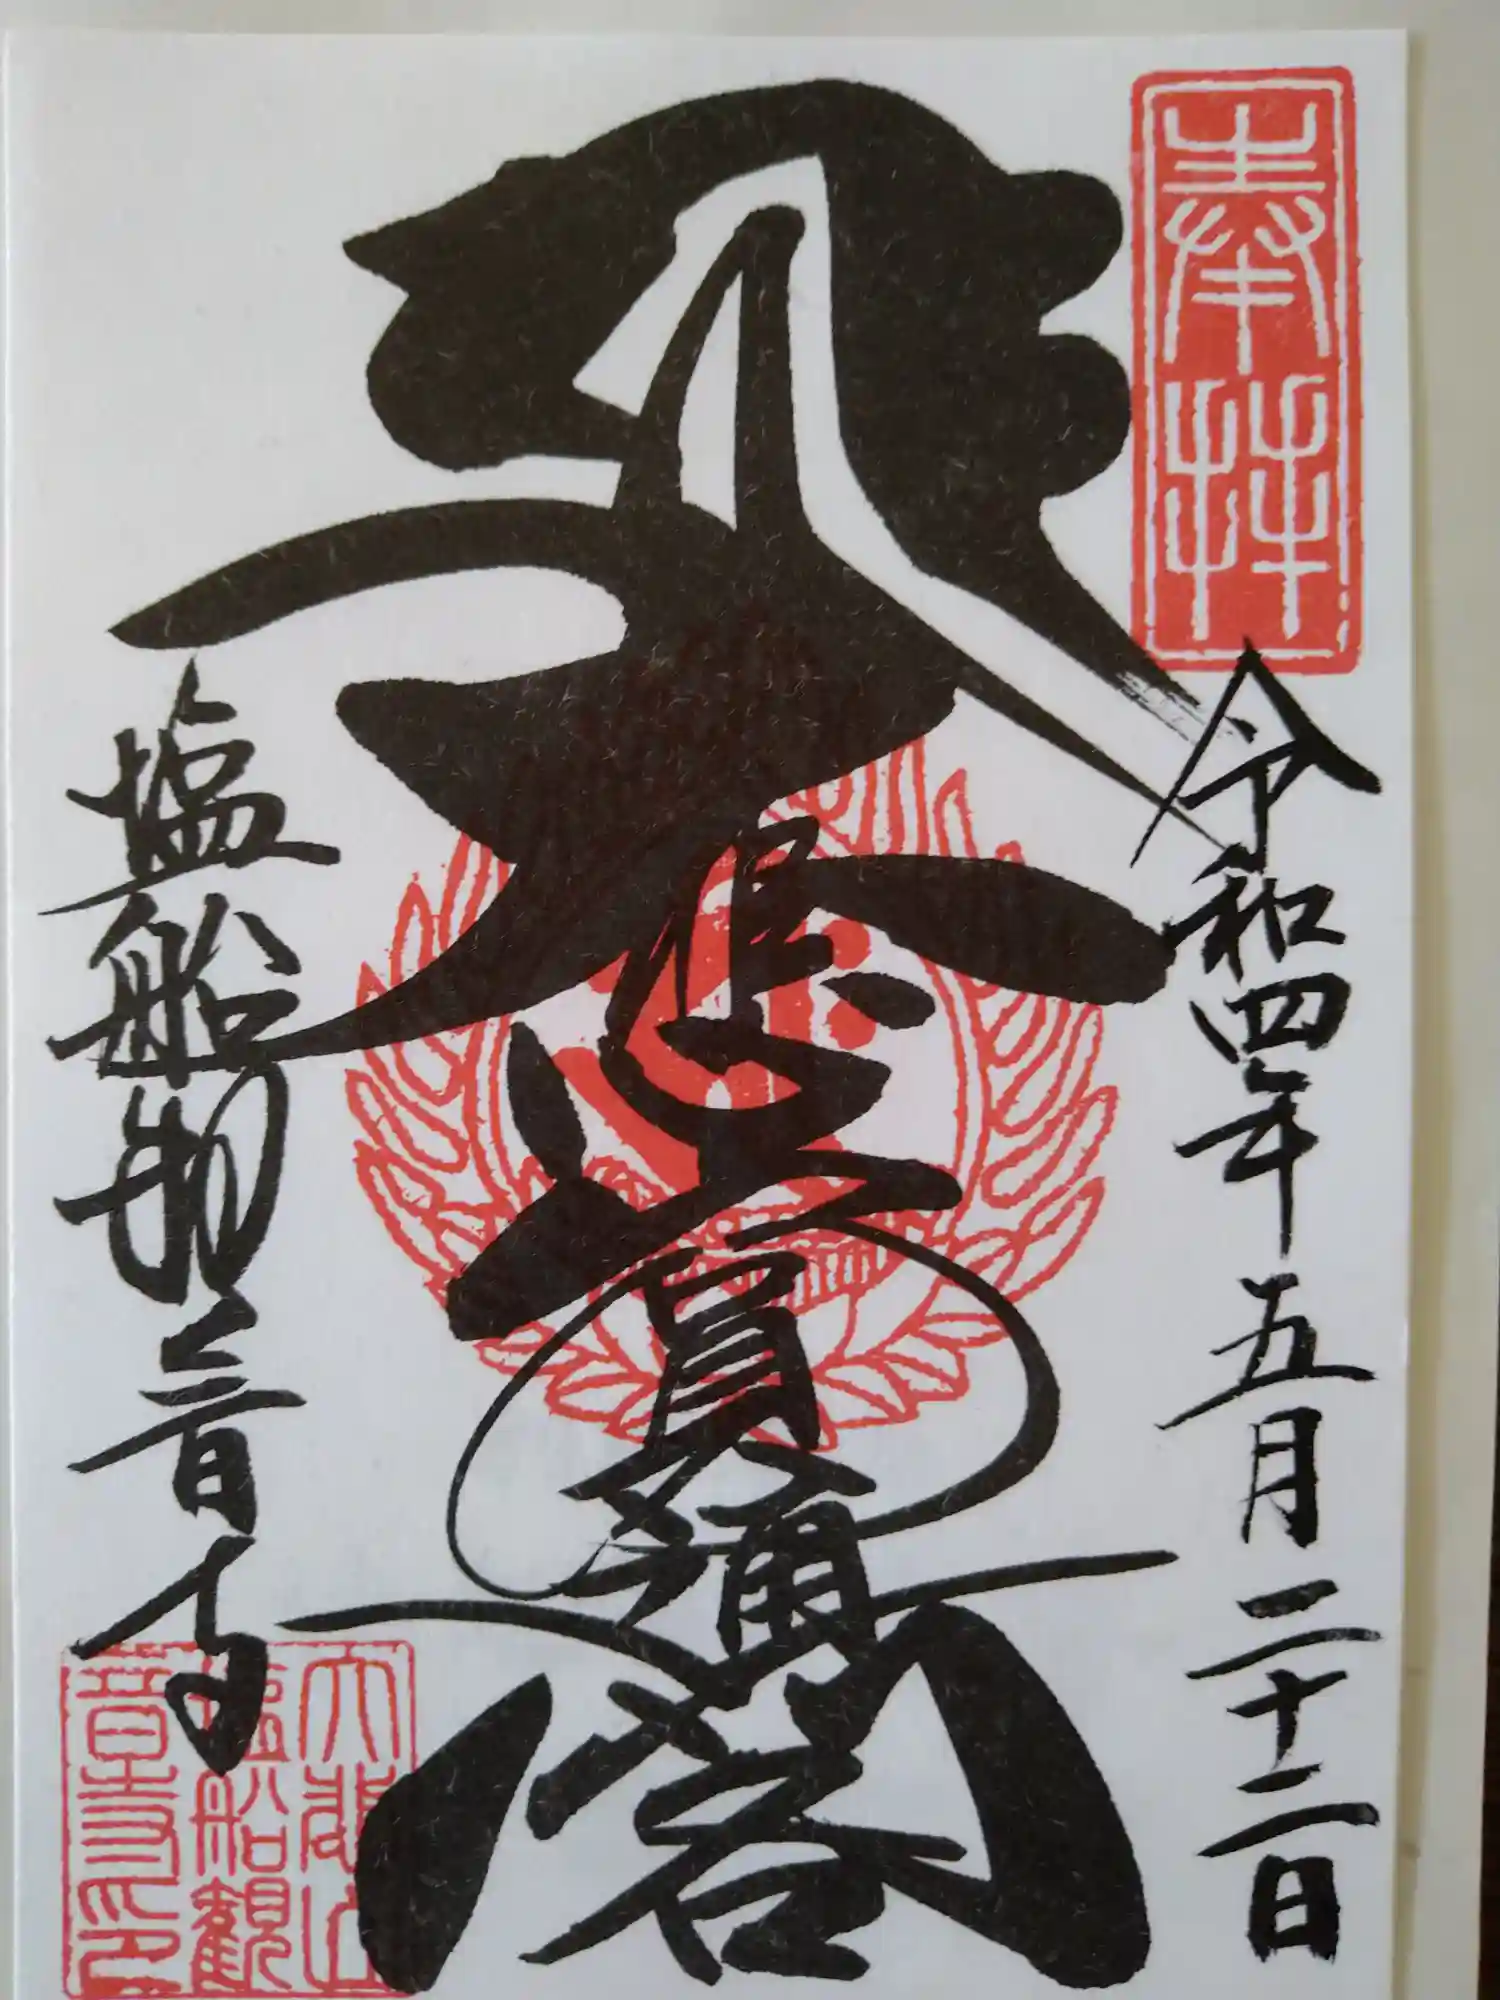 奉拝
令和四年五月二十二日
閣
塩船観音寺
大悲山
塩船観
音寺印